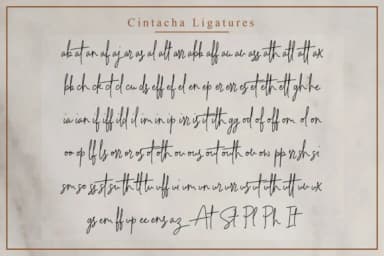 Cintacha Ligatures
ab at an af aj ar as al alt arr abb aff au aw ass ath atl att ax
bb ch ck ct cl cu ds eff ef el en ep er err es et eth ett gh he
ia ian if iff ild il im in ip irr is it ith gg od of off om ol on
oo op lf ls orr or os ot oth ou ous out outh ou ow pp rr sh si
sm so ss st su th tt tu uff ui um un ur urr us ut uth utt uu ux
gs em ff up ee ens az At St Pl Ph It